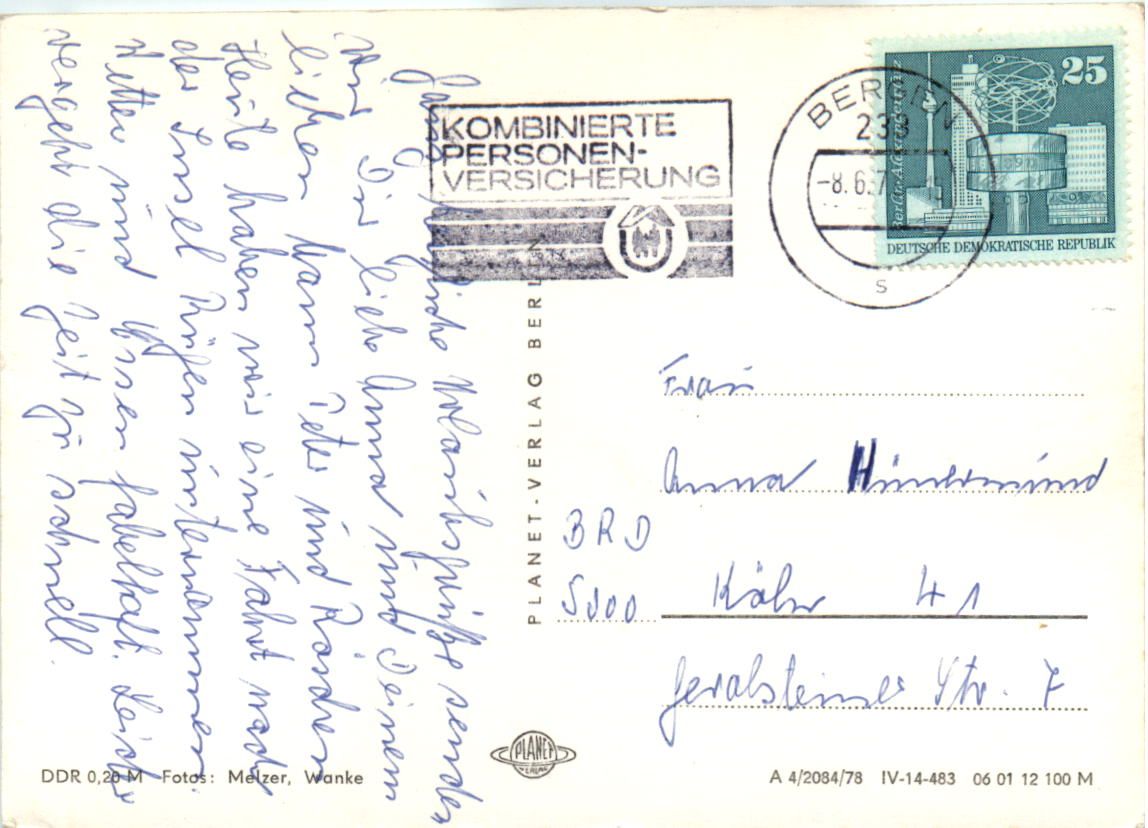 KOMBINIERTE
PERSONEN-
VERSICHERUNG
BERGEN
-8.6.7
S
25
Berlin-Alexanderplatz
DEUTSCHE DEMOKRATISCHE REPUBLIK
Urlaubsgrüße senden
wir Dir liebe Anna und Deinem
lieben Mann Peter und Röschen
Heute haben wir eine Fahrt nach
der Insel Rügen unternommen.
Wetter und Essen fabelhaft. Leider
vergeht die Zeit zu schnell.
PLANET-VERLAG BERLIN
Frau
Anna Hündermund
BRD
5000 Köln 41
Gerolsteiner Str. 7
PLANET
VERLAG
DDR 0,20 M Fotos: Melzer, Wanke
A 4/2084/78 IV-14-483 06 01 12 100 M